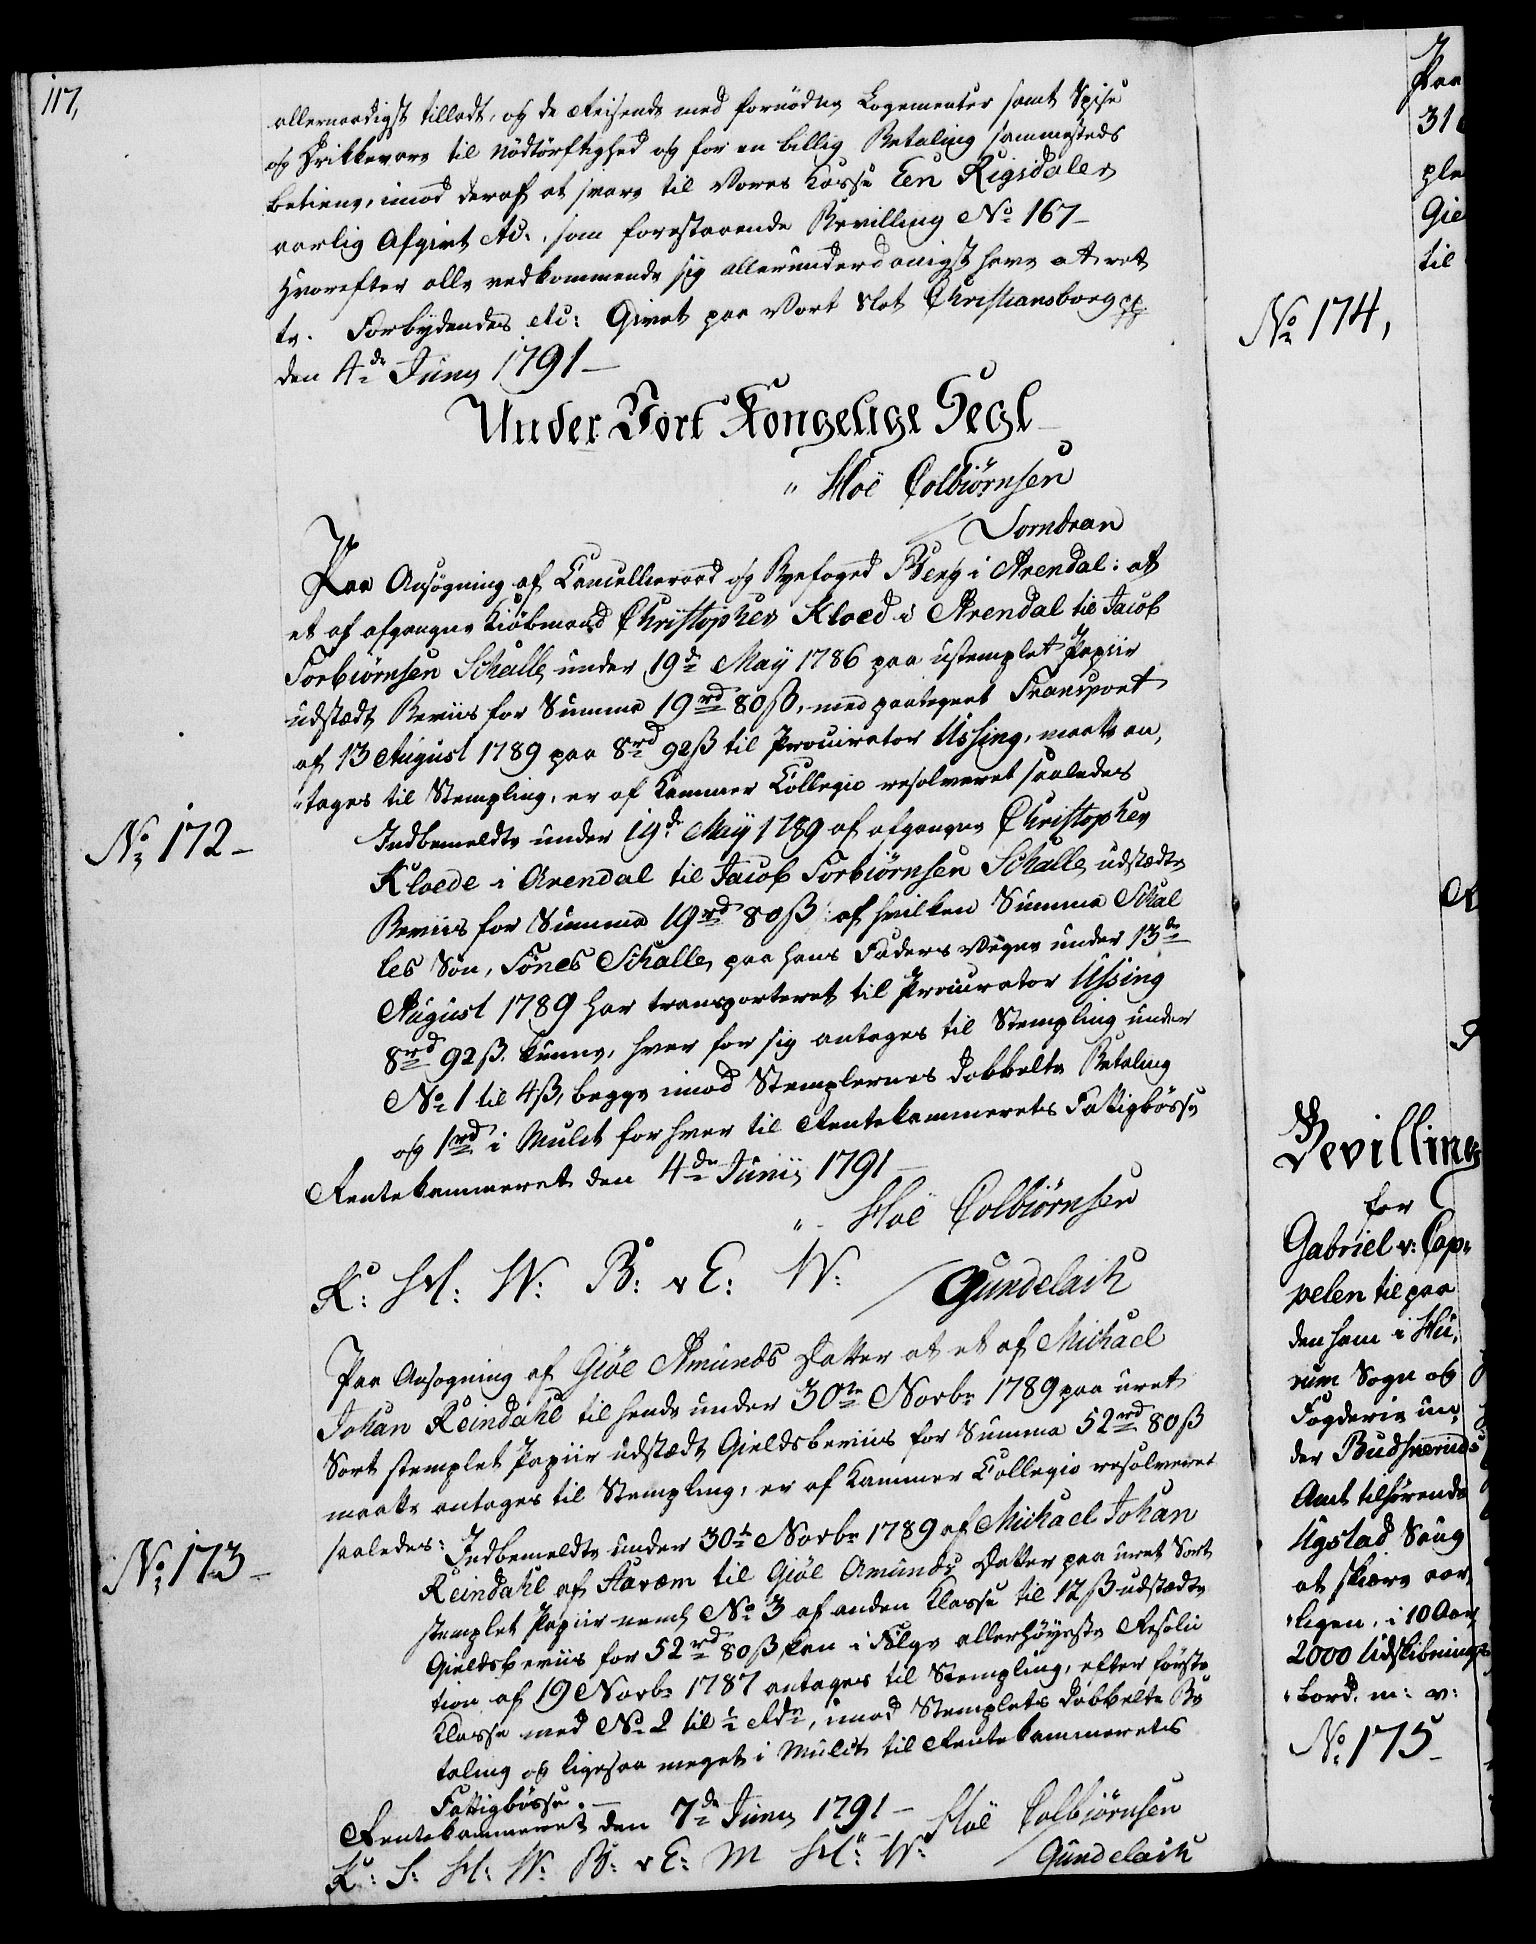 117,
allernaadigst tilladt, og de Reisende med fornödne Logementer samt Spise
og Drikkevare til Nödtörftighed og for en billig Betaling sammesteds
betiene, imod deraf at svare til Vores Casse Een Rigsdaler
aarlig Afgivt etc., som forestaaende Bevilling No 167-
Hvorefter alle vedkommende sig allerunderdanigst have at ret
te. Forbydendes etc: Givet paa Vort Slot Christiansborg
den 4de Juny 1791-
Under Vort Kongelige Segl
" Hoë Colbiørnsen
Lorndran
Paa Ansögning af Cancellieraad og Byefoged Berg i Arendal: at
et af afgangne Kiöbmand Christopher Kloed i Arendal til Jacob
Torbiørnsen Schalle, under 19de May 1786 paa ustemplet Papiir
udstædt Beviis for Summa 19rd 80ß, med paategnet Transport
af 13 August 1789 paa 8rd 92ß til Procurator Ussing, maatte an,
"tages til Stempling, er af Kammer Collegio resolveret saaledes
No 172-
Indbemeldte under 19de May 1789 af afgangne Christopher
Kloede i Arendal til Jacob Torbiørnsen Schalle, udstædte
Beviis for Summa 19rd 80ß: af hvilken Summa Schal
les Søn, Tönes Schalle, paa hans Faders Vegne under 13de
August 1789 har transporteret til Procurator Ussing
8rd 92ß. kunne, hver for sig antages til Stempling under
No 1 til 4ß, begge imod Stemplernes dobbelte Betaling
og 1rd i Mulct for hver til Rentekammerets Fattigbösse
Rentekammeret den 4de Junii 1791-
" Hoë Colbiørnsen
K: H: W: B: v E: W: Gundelach
Paa Ansögning af Giöe Amunds Datter at et af Michael
Johan Reindahl til hende under 30te Novbr 1789 paa uret
Sort stemplet Papiir udstædt Gieldsbeviis for Summa 52rd 80ß
maatte antages til Stempling, er af Kammer Collegio resolveret
No 173-
saaledes: Indbemeldte under 30te Novbr 1789 af Michael Johan
Reindahl af til Giöe Amunds Datter paa uret Sort
stemplet Papiir neml. No 3 af anden Klasse til 12ß udstædte
Gieldsbeviis for 52rd 80ß, kan i Fölge allerhöyeste Resolu
tion af 19 Novbr 1787 antages til Stempling, efter förste
Klasse med No 2 til ½ Rdr, imod Stemplets dobbelte Be
taling og ligesaa meget i Mulct til Rentekammerets
Fattigbösse.-
Rentekammeret den 7de Juny 1791- Hoë Colbiørnsen
K: S: H: W: B: v E: M H: W: Gundelach
Paa
31
ple
Gie
til
No 174,
Bevilling
for
Gabriel v: Cap,
pelen til paa
den ham i Hu,
rum Sogn og
Fogderie un,
der Budsneruds
Amt tilhørende
Ugstad Saug
at skiære aar,
"ligen, i 10 Aar,
2000 Udskibnings
"bord. m: v:
No 175-